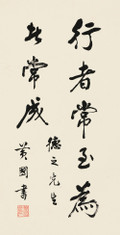 行者常至為
者常成
德之先生
黃國書